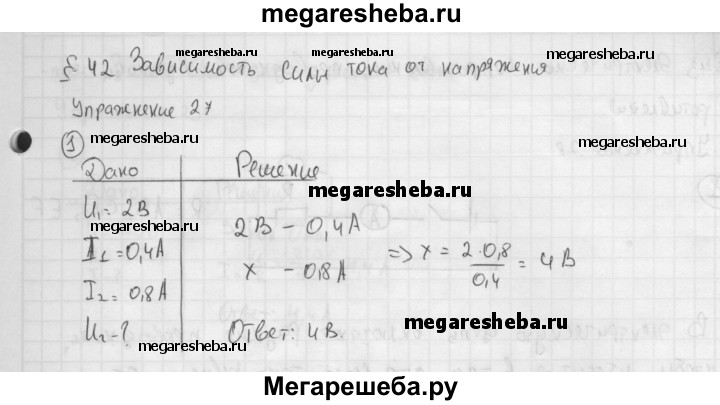 megaresheba.ru
§ 42 Зависимость силы тока от напряжения
megaresheba.ru megaresheba.ru megaresheba.ru
Упражнение 27
1 megaresheba.ru megaresheba.ru
Дано Решение
megaresheba.ru
U₁ = 2В
megaresheba.ru
2В – 0,4А
I₁ = 0,4А
x – 0,8А => x = 2·0,8 / 0,4 = 4В
megaresheba.ru
I₂ = 0,8А
U₂ – ? Ответ: 4В.
megaresheba.ru
megaresheba.ru
Мегарешеба.ру